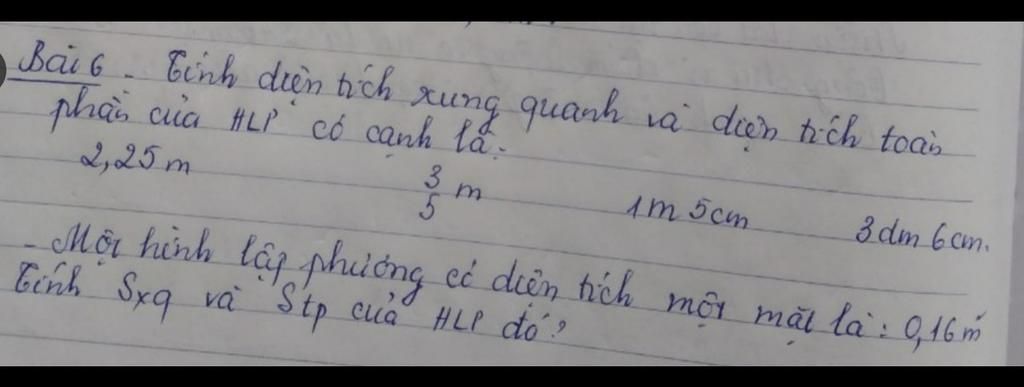 Bài 6 - Tính diện tích xung quanh và diện tích toàn
phần của HLP có cạnh là:
2,25 m 3/5 m 1m 5cm 3dm 6cm.
- Một hình lập phương có diện tích một mặt là: 0,16 m²
Tính Sxq và Stp của HLP đó?